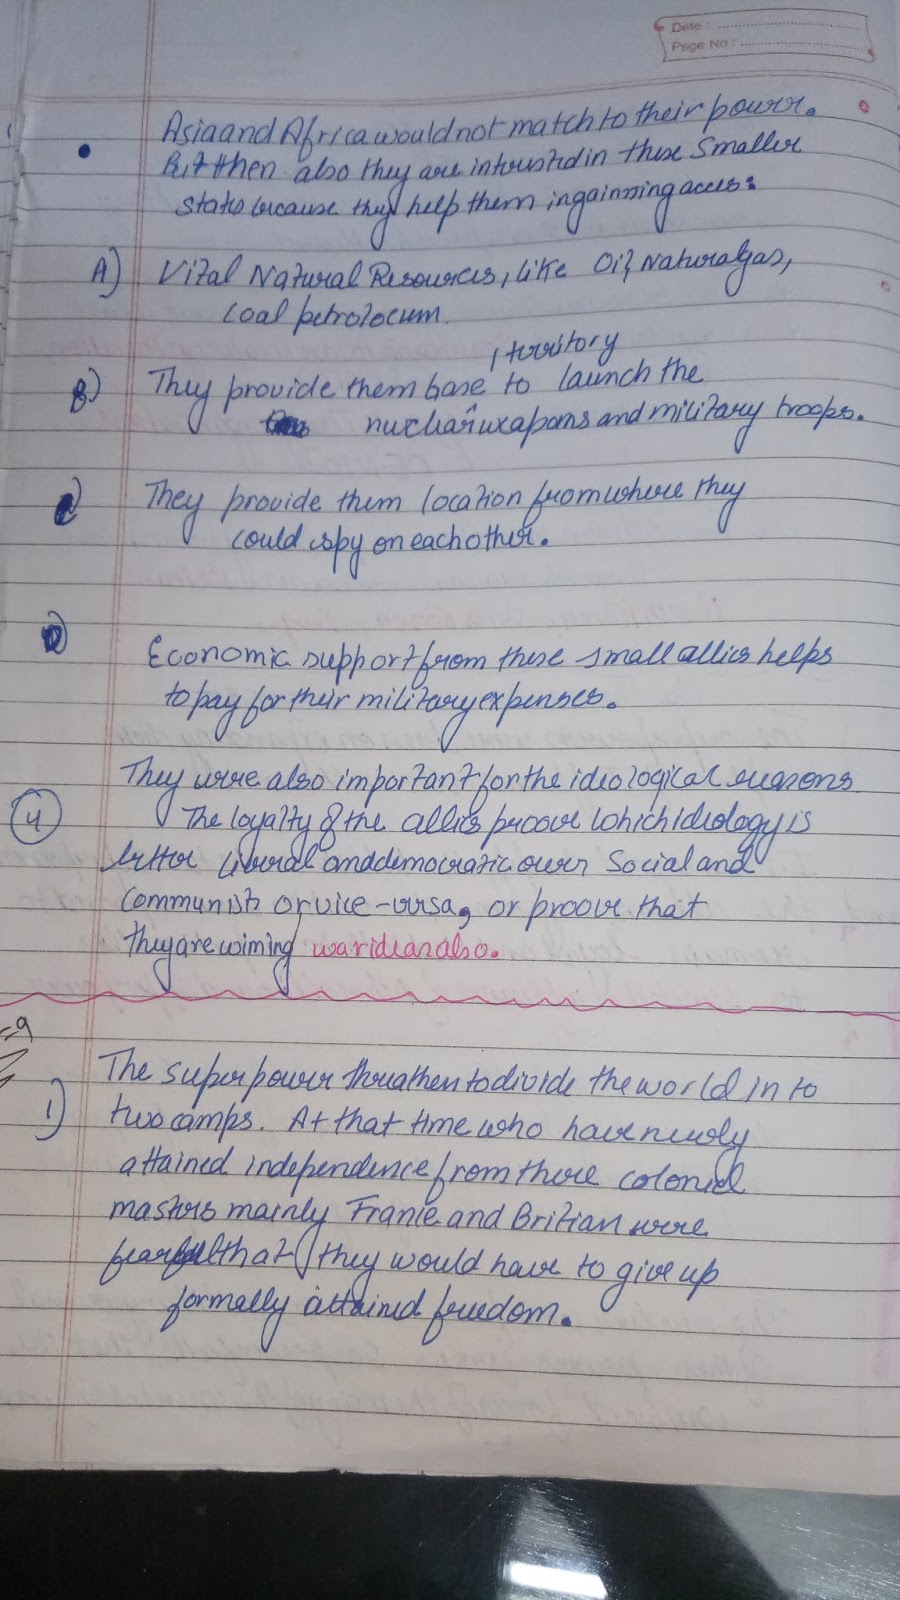 Date :
Page No :
Asia and Africa would not match to their power.
But then also they are intrusted in these smaller
states because they help them in gainming acces:
A) Vital Natural Resources, like Oil, Natural gas,
coal petrolocum.
, territory
B) They provide them base ^ to launch the
nuclear weapons and military troops.
C) They provide them location from where they
could spy on each other.
D) Economic support from these small allies helps
to pay for their military expenses.
4 They were also important for the ideological reasons
The loyalty of the allies proove which ideology is
better liberal and democratic over social and
communists or vice-versa, or proove that
they are wiming war ideas also.
1) The superpower threathen to divide the world in to
two camps. At that time who have newly
attained independence from there colonial
masters mainly Franie and Britian were
fearful that they would have to give up
formally attained freedom.